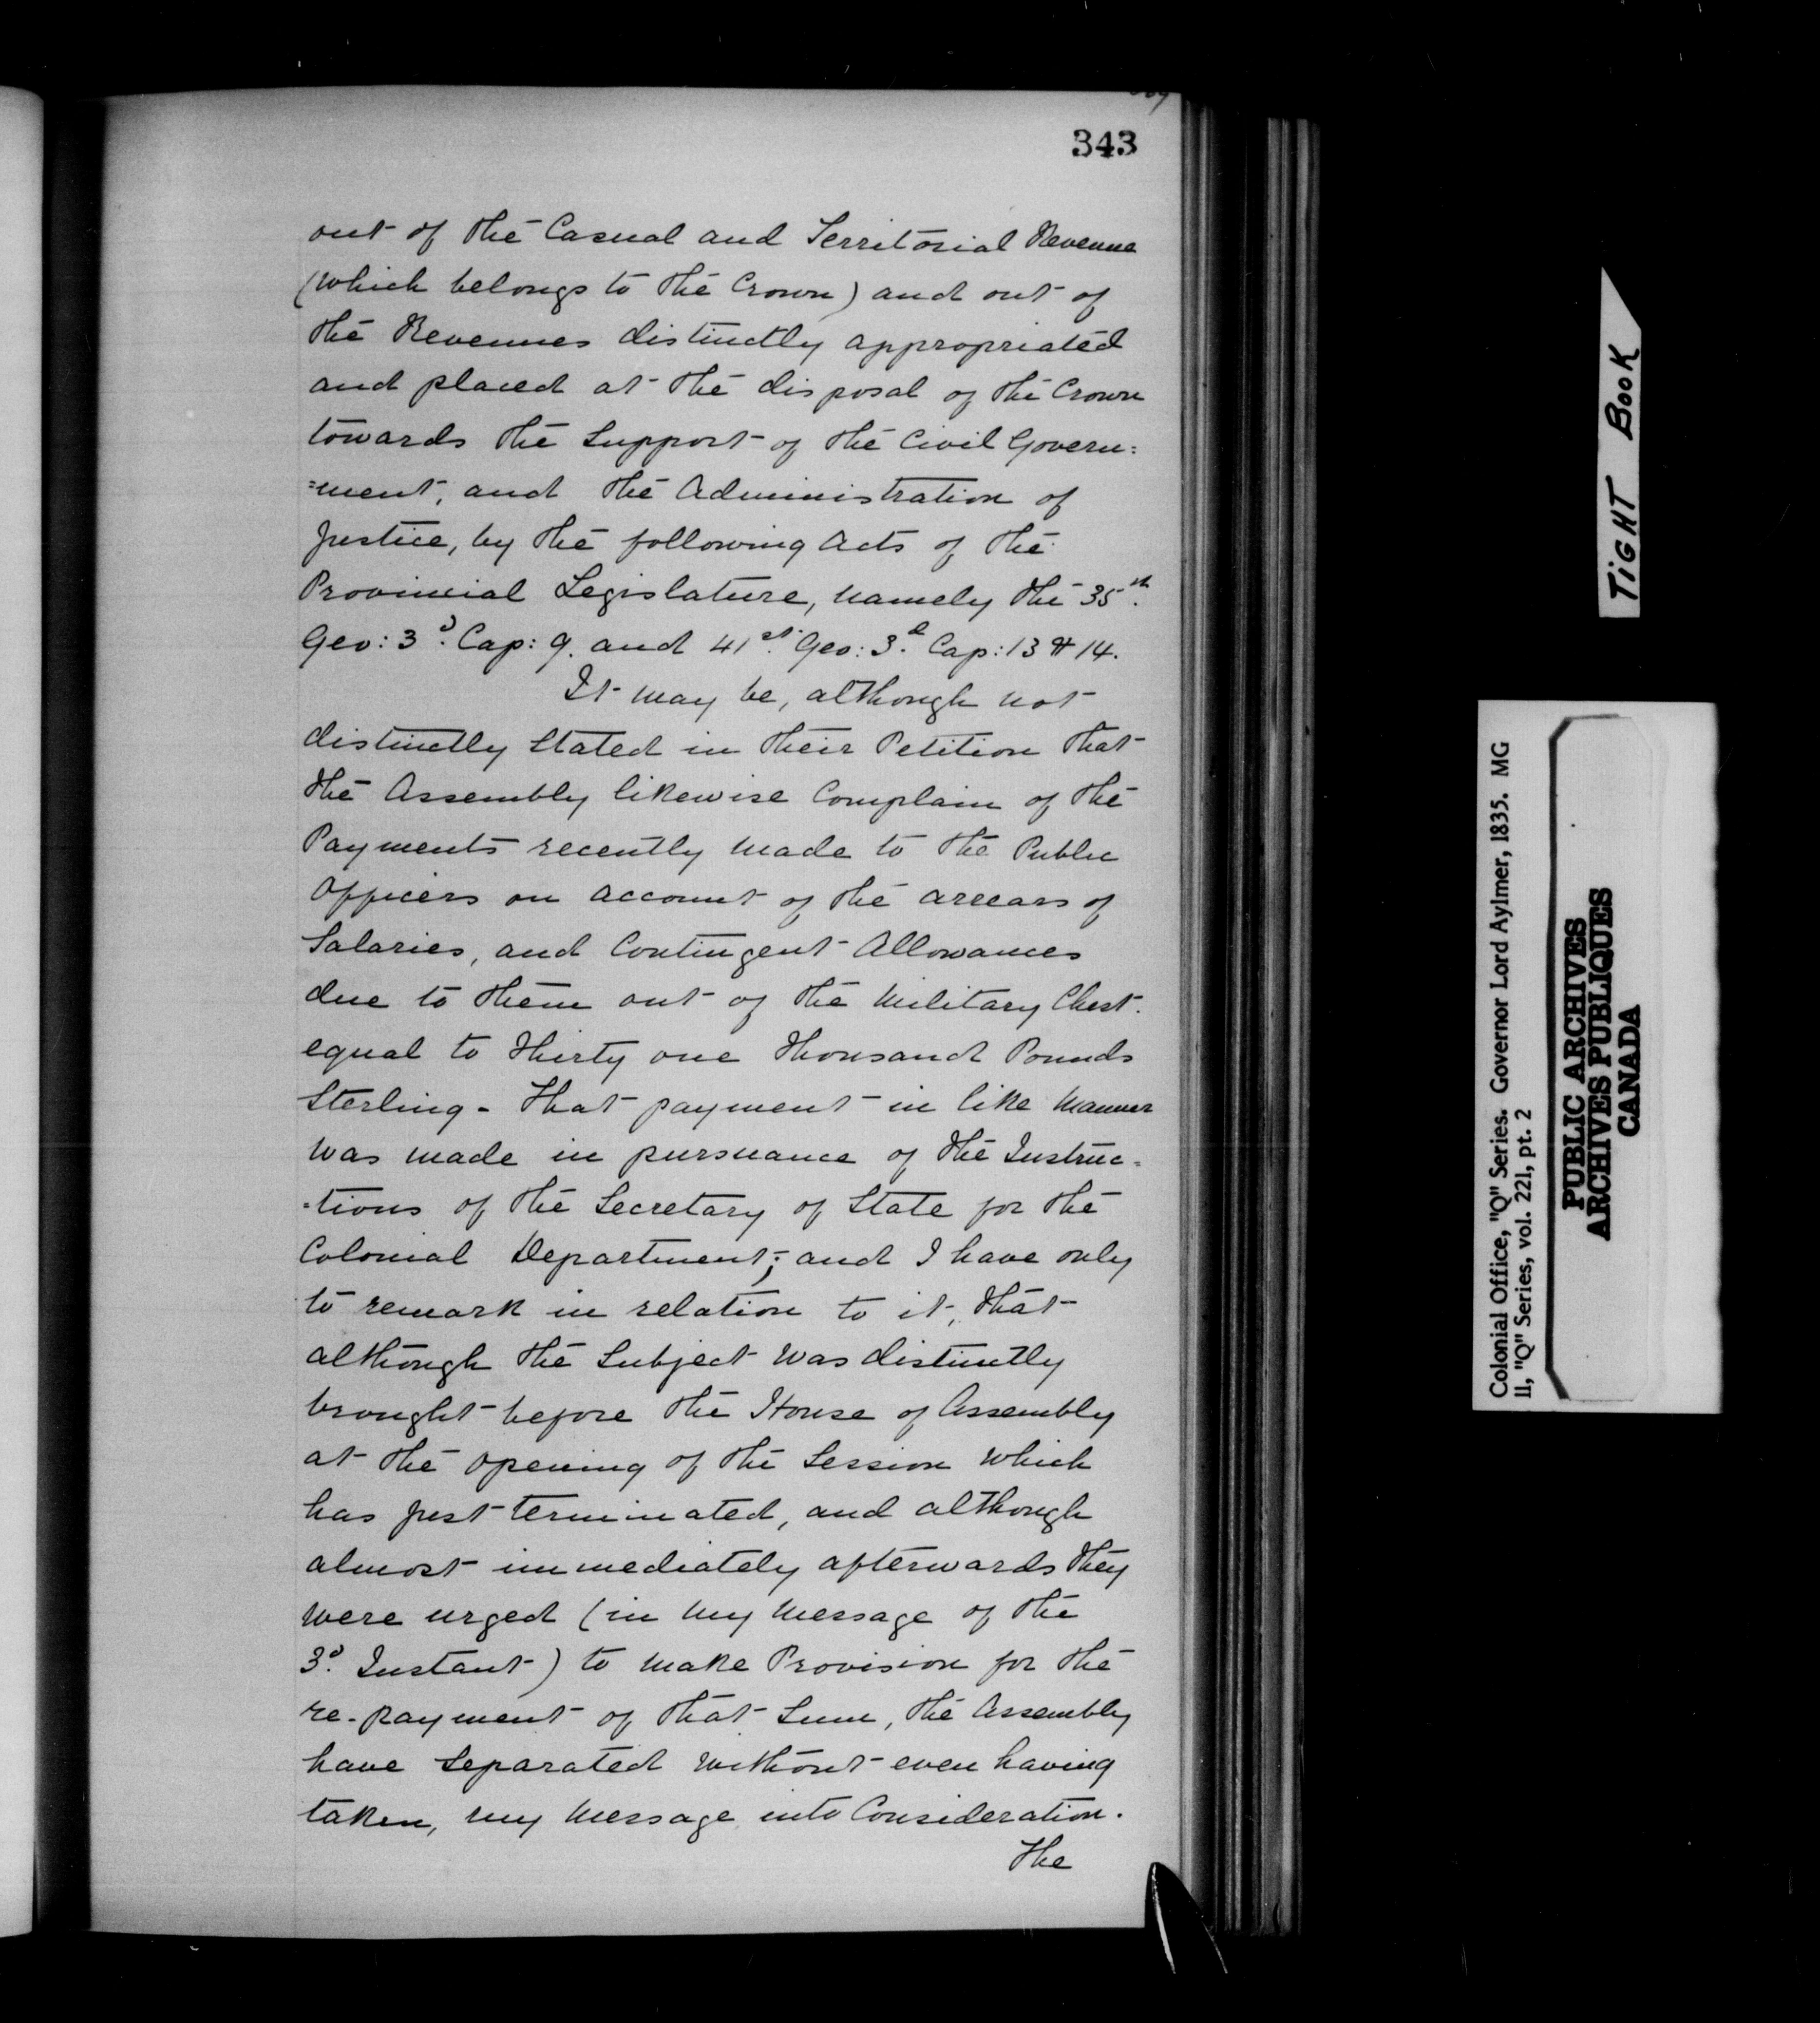 343
out of the Casual and Territorial Revenue
(which belongs to the Crown) and out of
the Revenues distinctly appropriated
and placed at the disposal of the Crown
towards the Support of the Civil Govern:
=ment, and the Administration of
Justice, by the following Acts of the
Provincial Legislature, namely the 35th.
Geo: 3d. Cap: 9. and 41st. Geo: 3d. Cap: 13 & 14.
It may be, although not
distinctly Stated in their Petition that
the Assembly likewise Complain of the
Payments recently made to the Public
Officers on account of the arrears of
Salaries, and Contingent Allowances
due to them out of the Military Chest.
equal to Thirty one Thousand Pounds
Sterling - That payment in like Manner
was made in pursuance of the Instruc-
-tions of the Secretary of State for the
Colonial Department; and I have only
to remark in relation to it, that
although the Subject was distinctly
brought before the House of Assembly
at the opening of the Session which
has just terminated, and although
almost immediately afterwards they
were urged (in my Message of the
3d. Instant) to make Provision for the
re-payment of that Sum, the Assembly
have Separated without even having
taken, my Message into Consideration.
The
TIGHT BOOK
Colonial Office, "Q" Series. Governor Lord Aylmer, 1835. MG
11, "Q" Series, vol. 221, pt. 2
PUBLIC ARCHIVES
ARCHIVES PUBLIQUES
CANADA